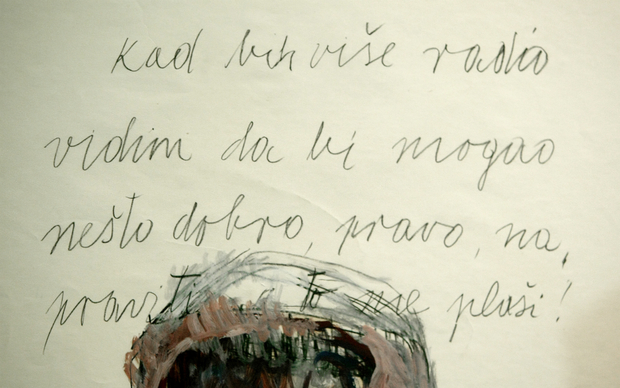 Kad bih više radio
vidim da bi mogao
nešto dobro, pravo, na,
praviti a to me plaši!